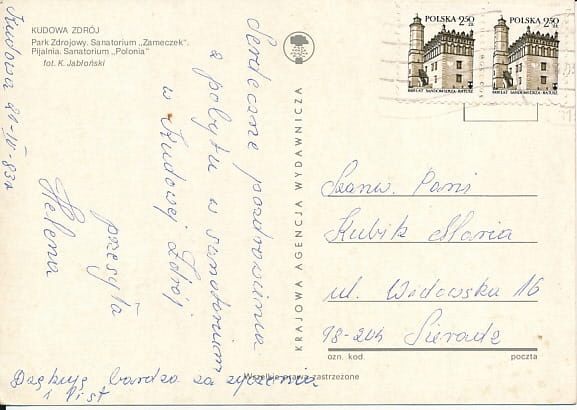 KUDOWA ZDRÓJ
Park Zdrojowy. Sanatorium „Zameczek".
Pijalnia. Sanatorium „Polonia"
fot. K. Jabłoński
Kudowa 21-IV-83r
Serdeczne pozdrowienia
z pobytu w sanatorium
w Kudowej Zdrój
przesyła
Helena
Dziękuję bardzo za życzenia
i list
KRAJOWA AGENCJA WYDAWNICZA
POLSKA 2,50 zł
800 LAT SANDOMIERZA • RATUSZ
POLSKA 2,50 zł
800 LAT SANDOMIERZA • RATUSZ
Szanw. Pani
Kubik Maria
ul. 16
98-204 Sieradz
ozn. kod. poczta
Wszelkie prawa zastrzeżone